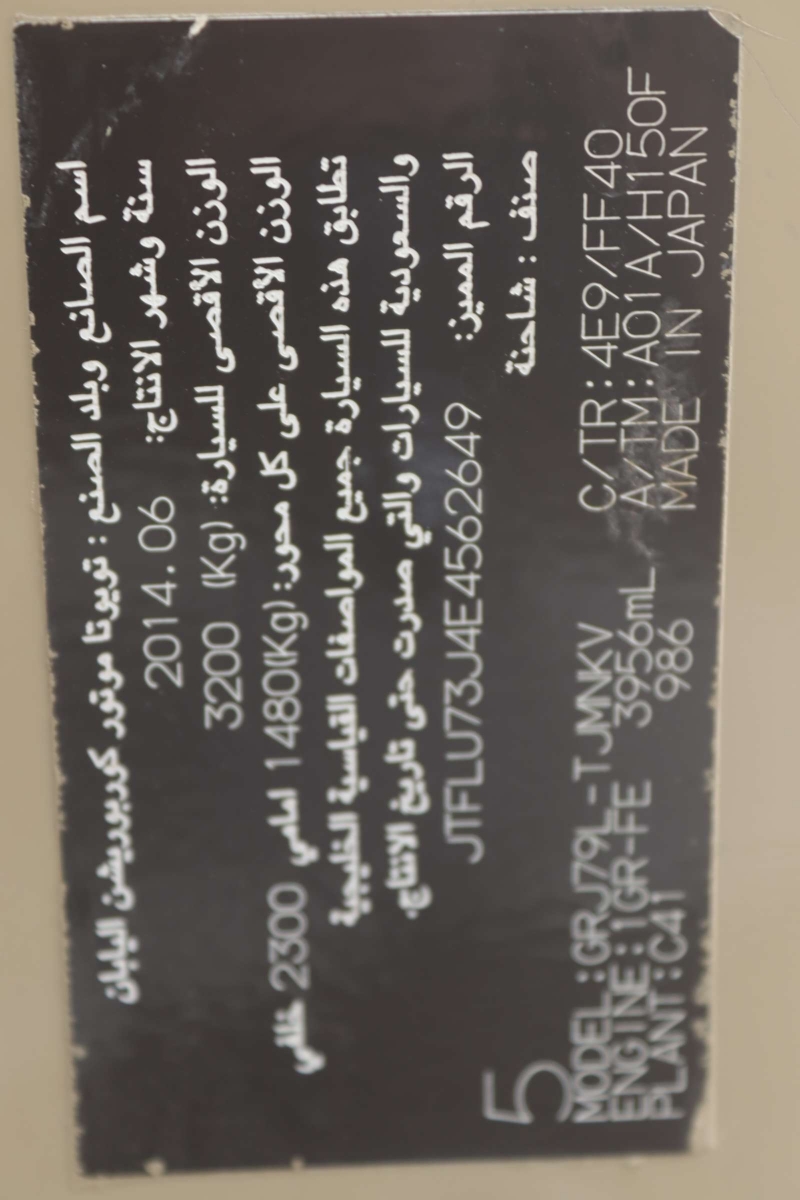 اسم الصانع وبلد الصنع : تويوتا موتور كوربوريشن اليابان
سنة وشهر الانتاج: 2014.06
الوزن الأقصى للسيارة: 3200 (Kg)
الوزن الأقصى على كل محور: 1480(Kg) امامي 2300 خلفي
تطابق هذه السيارة جميع المواصفات القياسية الخليجية
والسعودية للسيارات والتي صدرت حتى تاريخ الانتاج.
الرقم المميز: JTFLU73J4E4562649
صنف : شاحنة
5
MODEL:GRJ79L-TJMNKV C/TR:4E9/FF40
ENGINE:1GR-FE 3956mL A/TM:A01A/H150F
PLANT:C41 986 MADE IN JAPAN